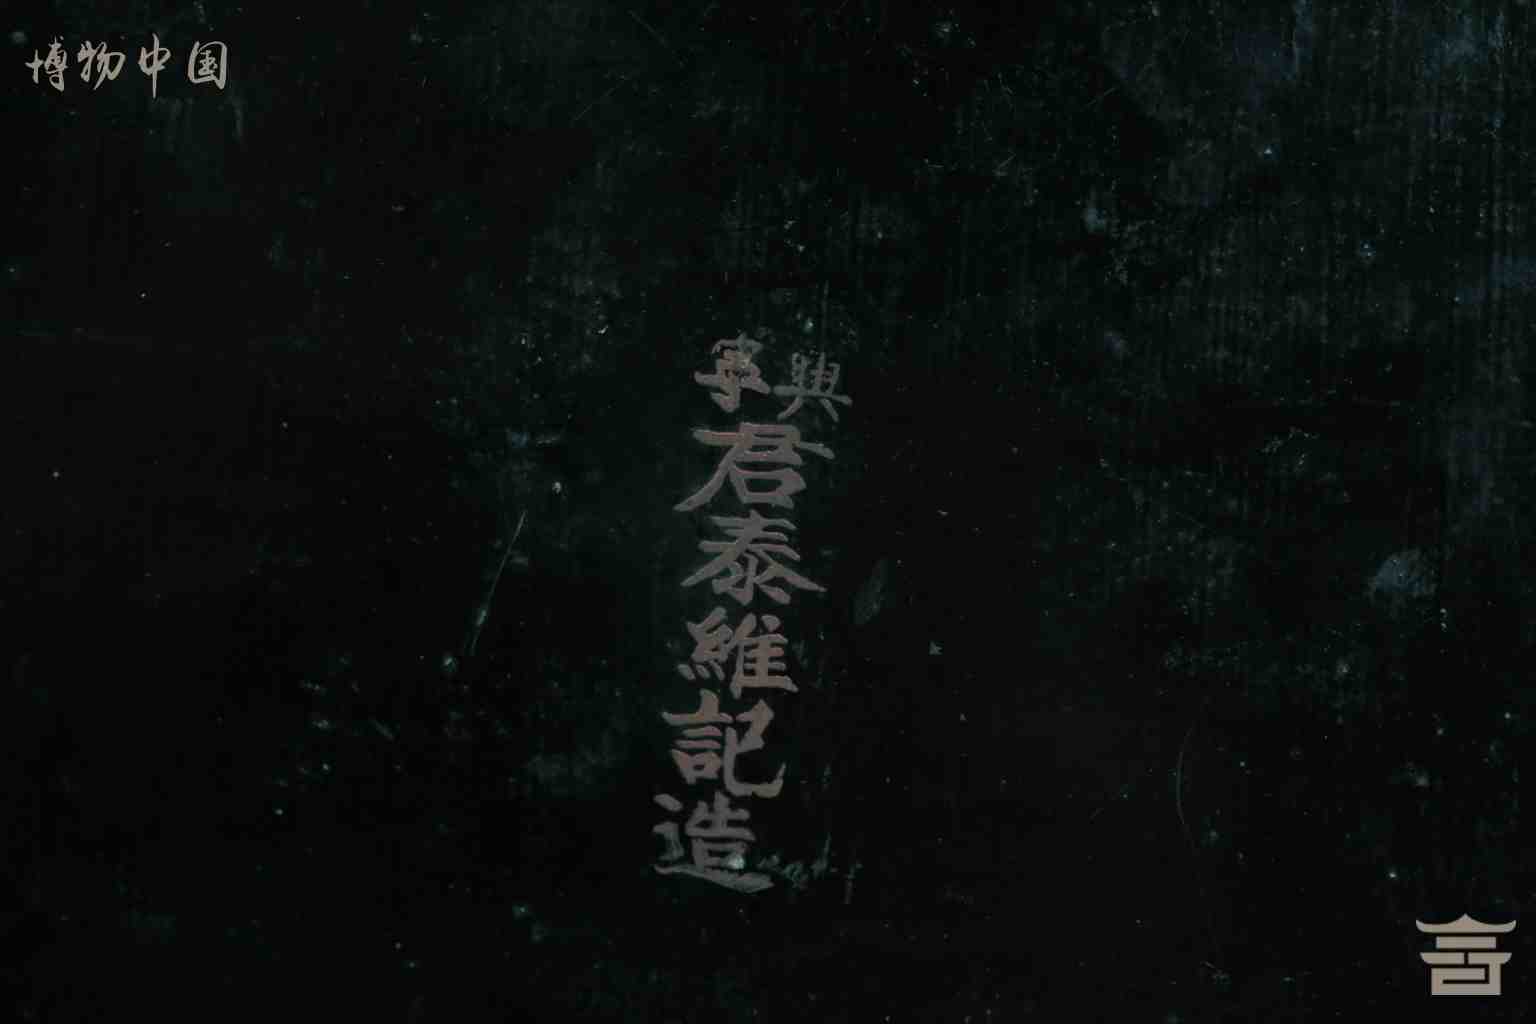 博物中国
興寧
君泰維記造